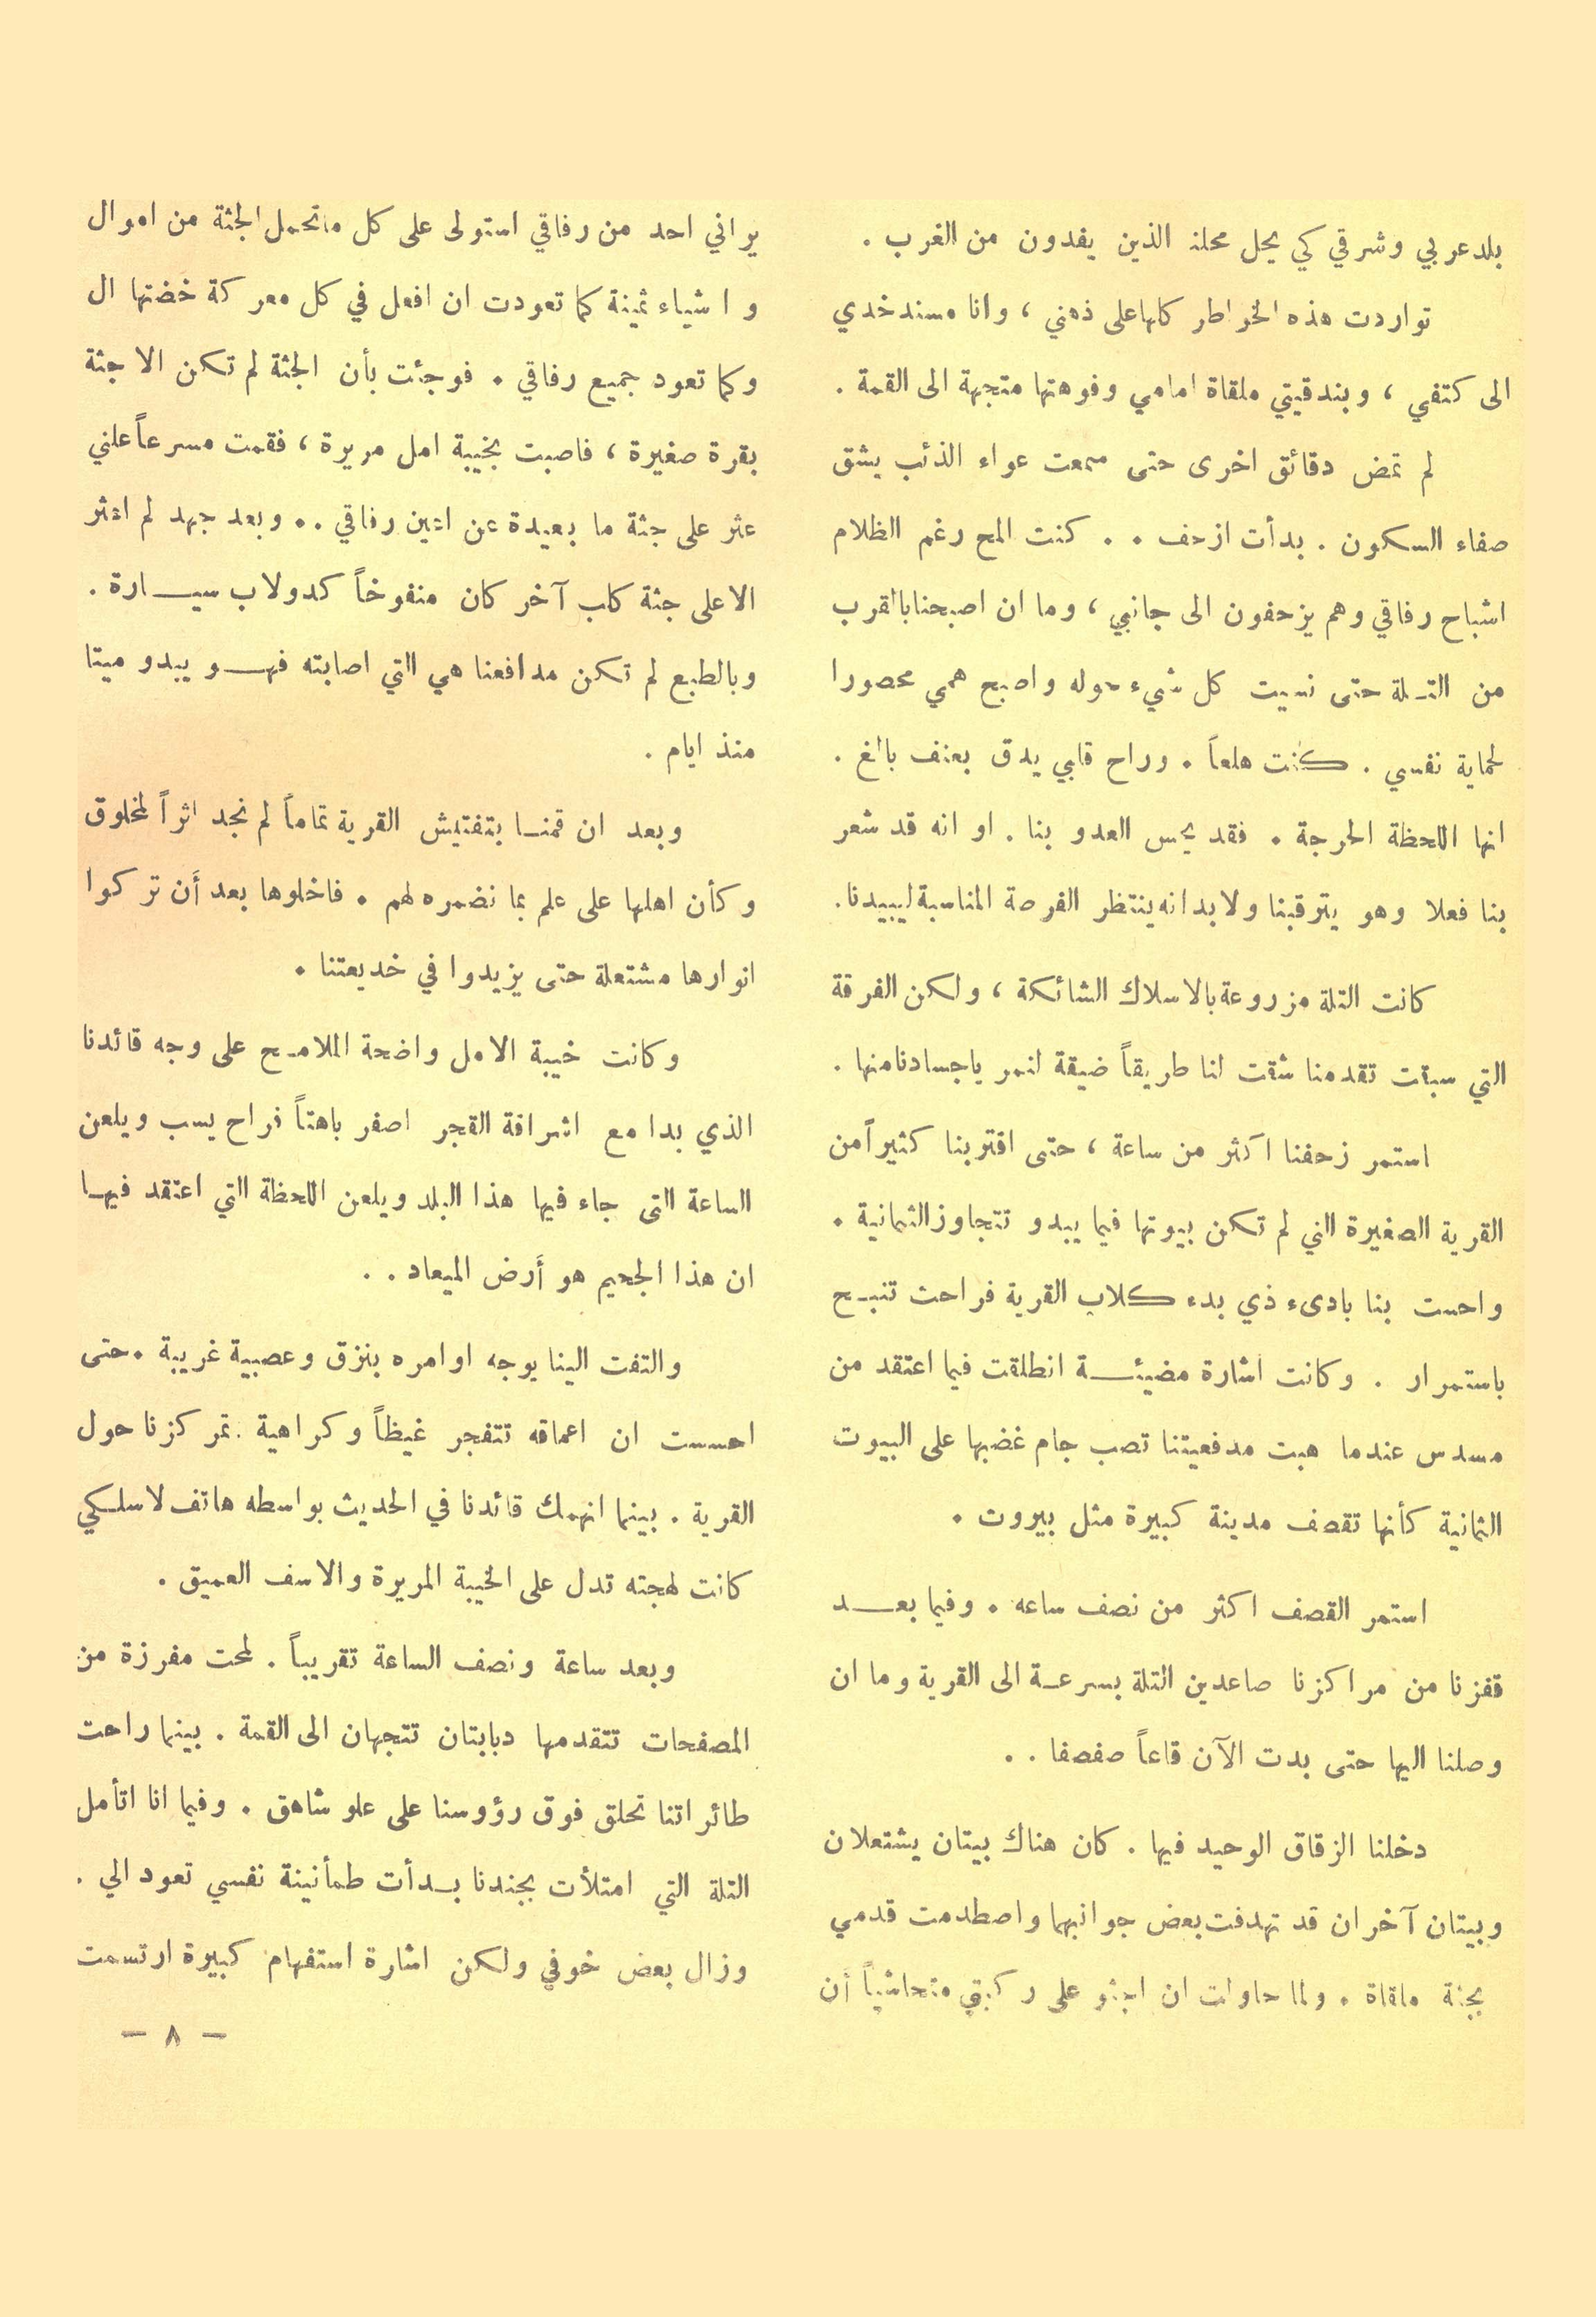 بلد عربي وشرقي كي يحل محله الذين يفدون من الغرب .
تواردت هذه الخواطر كلها على ذهني ، وانا مسند خدي
الى كتفي ، وبندقيتي ملقاة امامي وفوهتها متجهة الى القمة .
لم تمض دقائق اخرى حتى سمعت عواء الذئب يشق
صفاء السكون . بدأت ازحف . . كنت المح رغم الظلام
اشباح رفاقي وهم يزحفون الى جانبي ، وما ان اصبحنا بالقرب
من التـلة حتى نسيت كل شيء حوله واصبح همي محصورا
لحماية نفسي . كنت هلعاً . وراح قلبي يدق بعنف بالغ .
انها اللحظة الحرجة . فقد يحس العدو بنا . او انه قد شعر
بنا فعلا وهو يترقبنا ولابد انه ينتظر الفرصة المناسبة ليبيدنا .
كانت التلة مزروعة بالاسلاك الشائكة ، ولكن الفرقة
التي سبقت تقدمنا شقت لنا طريقاً ضيقة لنمر ياجسادنا منها .
استمر زحفنا اكثر من ساعة ، حتى اقتربنا كثيراً من
القرية الصغيرة التي لم تكن بيوتها فيما يبدو تتجاوز الثمانية .
واحست بنا بادىء ذي بدء كلاب القرية فراحت تنبـح
باستمرار . وكانت اشارة مضيئـــة انطلقت فيما اعتقد من
مسدس عندما هبت مدفعيتنا تصب جام غضبها على البيوت
الثمانية كأنها تقصف مدينة كبيرة مثل بيروت .
استمر القصف اكثر من نصف ساعه . وفيما بعـــد
قفزنا من مراكزنا صاعدين التلة بسرعـة الى القرية وما ان
وصلنا اليها حتى بدت الآن قاعاً صفصفا . .
دخلنا الزقاق الوحيد فيها . كان هناك بيتان يشتعلان
وبيتان آخران قد تهدفت بعض جوانبهما واصطدمت قدمي
بجثة ملقاة . ولما حاولت ان اجثو على ركبتي متحاشياً أن
يراني احد من رفاقي استولى على كل ماتحمل الجثة من اموال
و اشياء ثمينة كما تعودت ان افعل في كل معركة خضتها ال
وكما تعود جميع رفاقي . فوجئت بأن الجثة لم تكن الا جثة
بقرة صغيرة ، فاصبت بخيبة امل مريرة ، فقمت مسرعاً علني
عثر على جثة ما بعيدة عن اعين رفاقي . . وبعد جهد لم اعثر
الا على جثة كلب آخر كان منفوخاً كدولاب سيــارة .
وبالطبع لم تكن مدافعنا هي التي اصابته فهــو يبدو ميتا
منذ ايام .
وبعد ان قمنـا بتفتيش القرية تماماً لم نجد اثراً لمخلوق
وكأن اهلها على علم بما نضمره لهم . فاخلوها بعد أَن تركوا
انوارها مشتعلة حتى يزيدوا في خديعتنا .
وكانت خيبة الامل واضحة الملامـح على وجه قائدنا
الذي بدا مع اشراقة الفجر اصفر باهتاً فراح يسب ويلعن
الساعة التى جاء فيها هذا البلد ويلعن اللحظة التي اعتقد فيهـا
ان هذا الجحيم هو أَرض الميعاد . .
والتفت الينا يوجه اوامره بنزق وعصبية غريبة . حتى
احسست ان اعماقه تتفجر غيظاً وكراهية . تمركزنا حول
القرية . بينما انهمك قائدنا في الحديث بواسطه هاتف لاسلكي
كانت لهجته تدل على الخيبة المريرة والاسف العميق .
وبعد ساعة ونصف الساعة تقريباً . لمحت مفرزة من
المصفحات تتقدمها دبابتان تتجهان الى القمة . بينما راحت
طائراتنا تحلق فوق رؤوسنا على علو شاهق . وفيما انا اتأمل
التلة التي امتلأت بجندنا بـدأت طمأنينة نفسي تعود الي .
وزال بعض خوفي ولكن اشارة استفهام كبيرة ارتسمت
— ٨ —